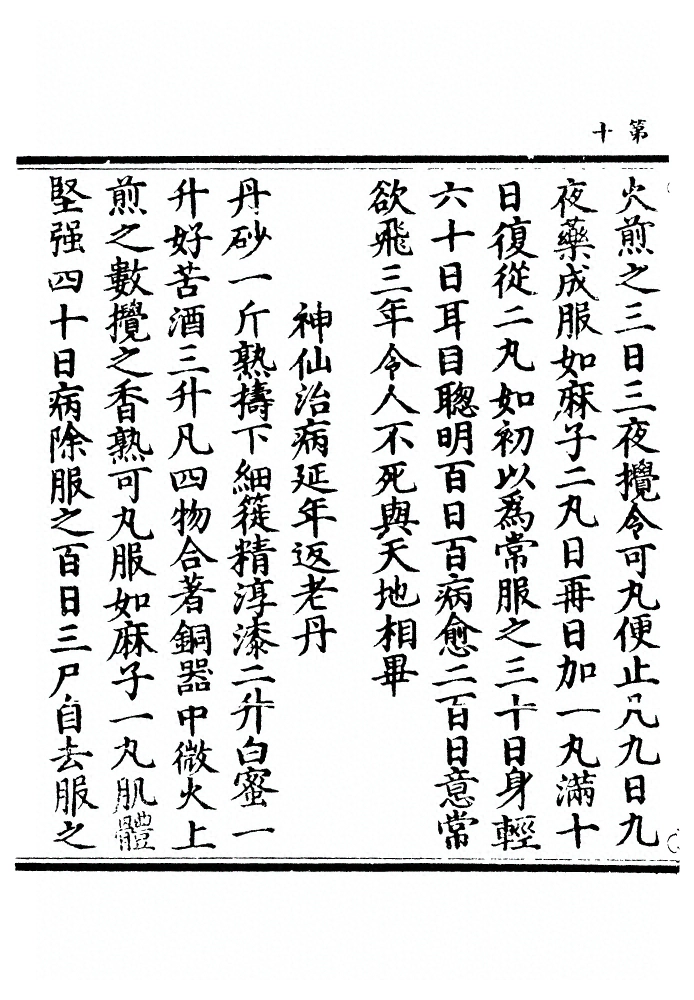 第十
火煎之三日三夜攪令可丸便止凡九日九
夜藥成服如麻子二丸日再日加一丸滿十
日復從二丸如初以為常服之三十日身輕
六十日耳目聰明百日百病愈二百日意常
欲飛三年令人不死與天地相畢
神仙治病延年返老丹
丹砂一斤熟擣下細簁精淳漆二升白蜜一
升好苦酒三升凡四物合著銅器中微火上
煎之數攪之香熟可丸服如麻子一丸肌體
堅强四十日病除服之百日三尸自去服之